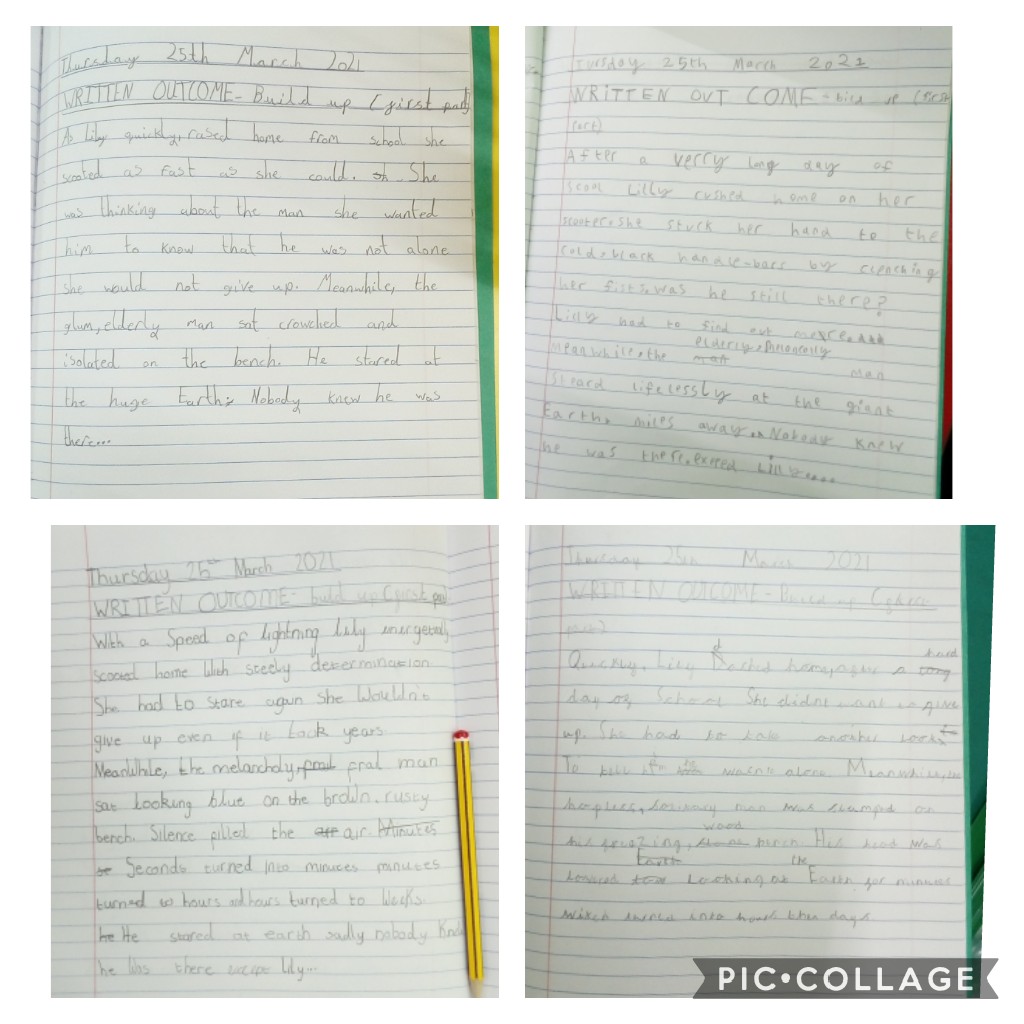 Thursday 25th March 2021
WRITTEN OUTCOME- Build up (first part)
As Lily quickly, rased home from school she
scooted as fast as she could. She
was thinking about the man she wanted
him to know that he was not alone
she would not give up. Meanwhile, the
glum, elderly man sat crowched and
isolated on the bench. He stared at
the huge Earth; Nobody knew he was
there...
Tursday 25th March 2021
WRITTEN OUT COME - up (first
part)
After a verry long day of
scool Lilly rushed home on her
scooter. She stuck her hand to the
cold, black handle-bars by clenching
her fists, was he still there?
Lilly had to find out more.
meanwhile, the elderly, man
steard lifelessly at the giant
Earth, miles away. Nobody knew
he was there, exeped Lilly....
Thursday 25th March 2021
WRITTEN OUTCOME- build up (first part)
With a speed of lightning lily energeticly
scooted home With steely determination
She had to stare agun she wouldn't
give up even if it took years
Meanwhile, the melancholy, fral man
sat looking blue on the brown, rusty
bench. Silence filled the air. Minutes
Seconds turned into minutes minutes
turned to hours and hours turned to Weeks.
He stared at earth sadly nobody Knew
he Was there except lily...
Thursday 25th March 2021
WRITTEN OUTCOME - Build up (first
part)
Quickly, Lily Dashed home, after a long hard
day of School She didnt want to give
up. She had to take another look
To wasn't alone Meanwhile,
hopless, man was slumped on
his freezing, wood bench. His head was
Looking at the Earth, for minutes
turned into hours then days
PIC•COLLAGE